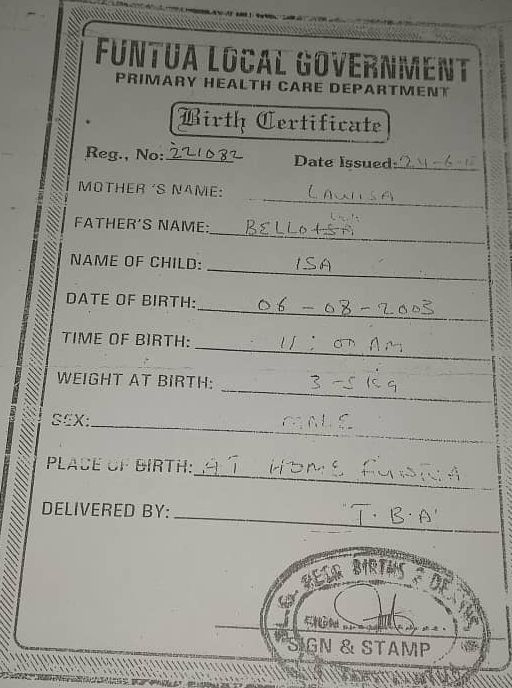 FUNTUA LOCAL GOVERNMENT
PRIMARY HEALTH CARE DEPARTMENT
Birth Certificate
Reg., No: 221082 Date Issued: 24-6-
MOTHER'S NAME:
FATHER'S NAME: BELLO ISA
NAME OF CHILD: ISA
DATE OF BIRTH: 06-08-2003
TIME OF BIRTH: 11:00 AM
WEIGHT AT BIRTH: 3-5 Kg
SEX: MALE
PLACE OF BIRTH: AT HOME FUNTUA
DELIVERED BY: T.B.A
BIRTHS & DEATHS
SIGN
SIGN & STAMP